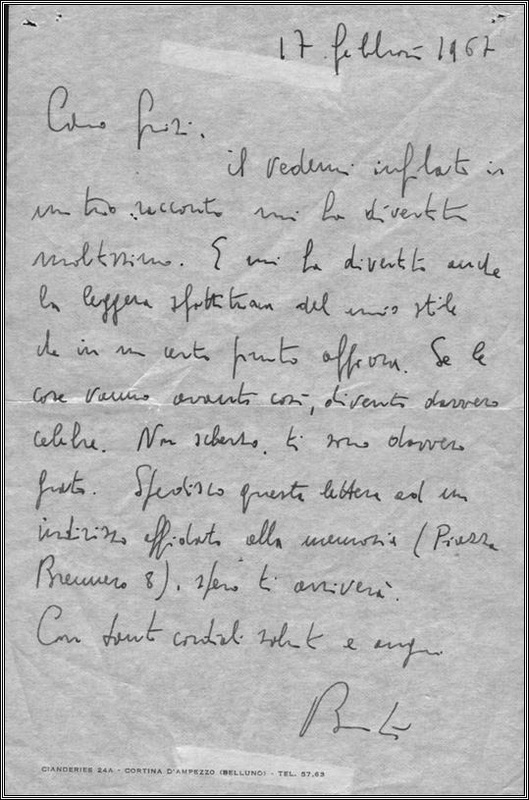 17 febbraio 1967
Caro
il vedermi infilato in
un tuo racconto mi ha divertito
moltissimo. E mi ha divertito anche
la leggera sfottitura del mio stile
che in un certo punto affiora. Se le
cose vanno avanti così, divento davvero
celebre. Non scherzo, ti sono davvero
grato. Spedisco questa lettera ad un
indirizzo affidato alla memoria (Piazza
Brennero 8), spero ti arriverà.
Con tanti cordiali saluti e auguri
CIANDERIES 24A - CORTINA D'AMPEZZO (BELLUNO) - TEL. 57.63